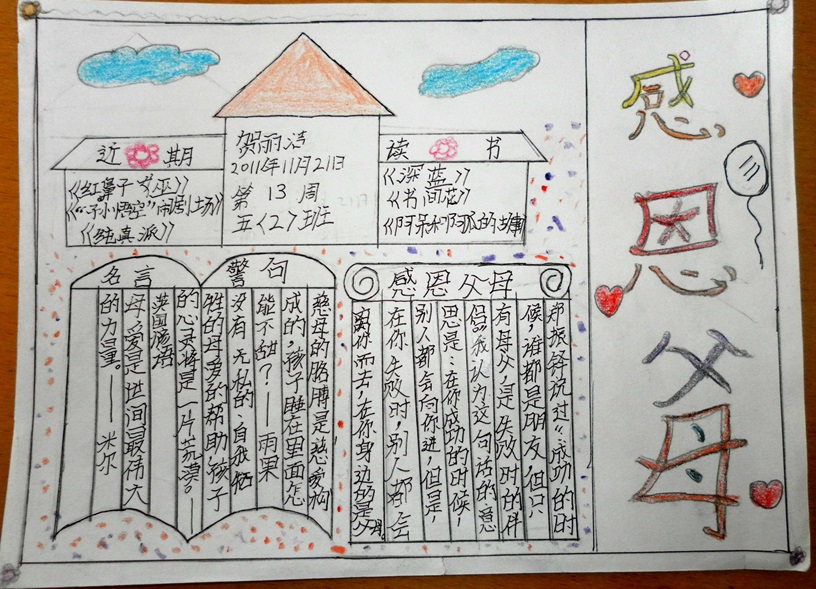 感恩父母
近期
《红 子女巫》
《“孙悟空”闹剧场》
《纯真派》
贺雨洁
2011年11月21日
第13周
五〈2〉班
读书
《深蓝》
《书间花》
《阿呆和阿狐的
名言警句
慈母的胳膊是慈爱构
成的,孩子睡在里面怎
能不甜?——雨果
没有无私的、自我牺
牲的母爱的帮助,孩子
的心灵将是一片荒漠。——
英国谚语
母爱是世间最伟大
的力量。——米尔
感恩父母
郑振铎说过:“成功的时
候,谁都是朋友,但只
有母父,是失败时的伴
侣。”我认为这句话的意
思是:在你成功的时候,
别人都会向你进,但是,
在你失败时,别人都会
离你而去,在你身边的是父母。